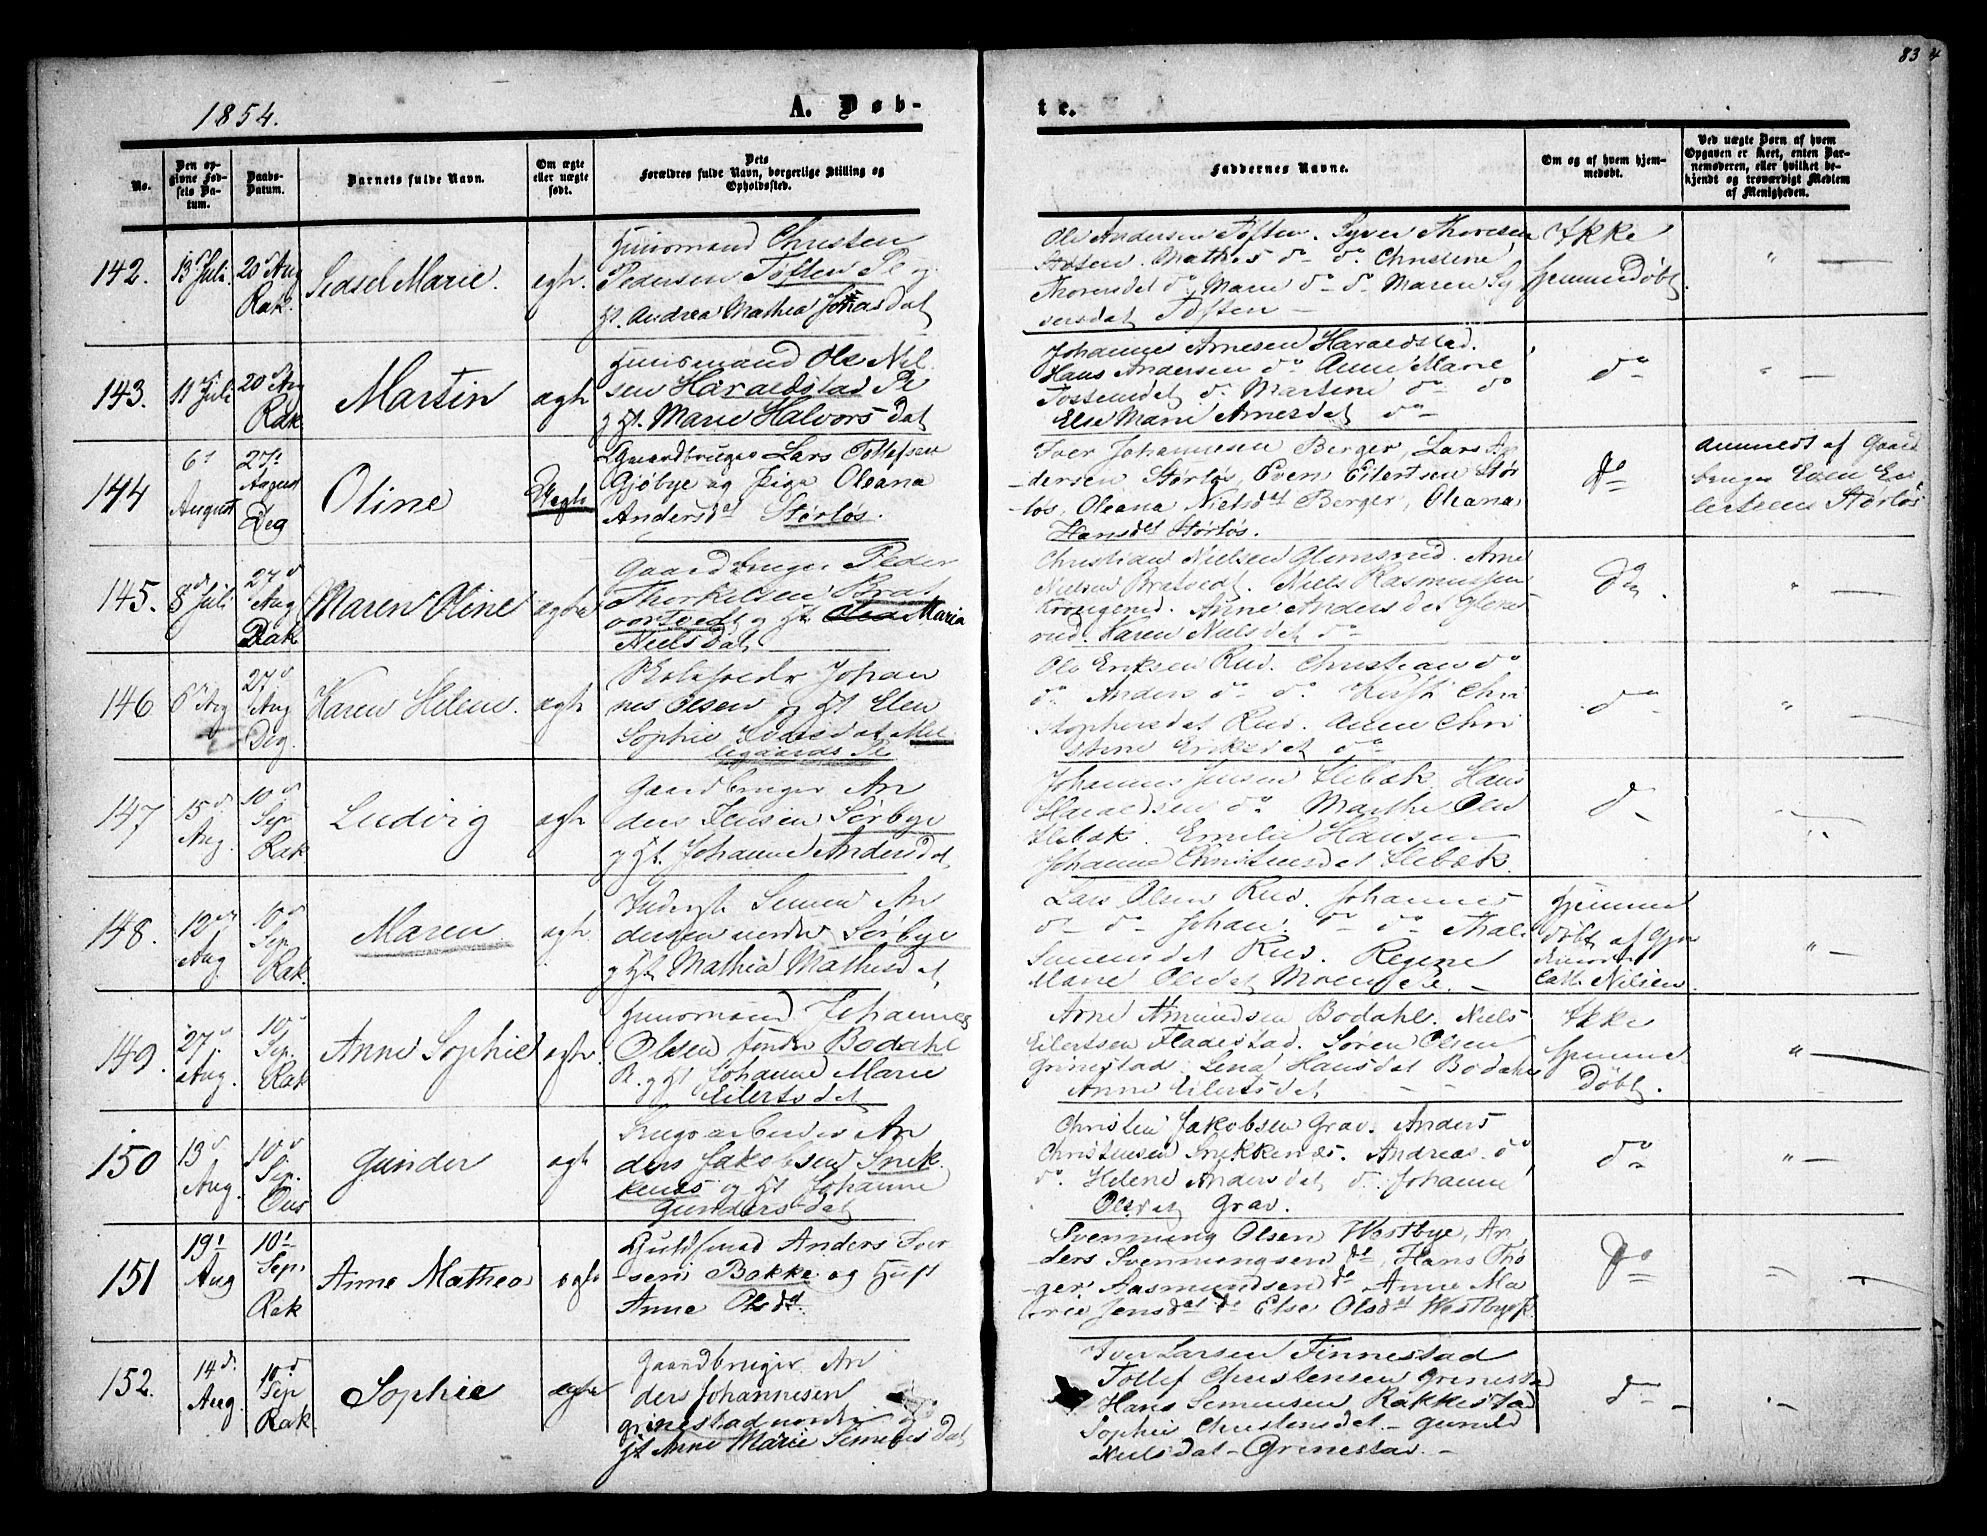 83
1854.
A. Døb-
te.
No.
Den opgivne Fødsels Datum.
Daabs-Datum.
Barnets fulde Navn.
Om ægte eller uægte født.
Dets Forældres fulde Navn, borgerlige Stilling og Opholdssted.
Faddernes Navne.
Om og af hvem hjemmedøbt.
Ved uægte Børn af hvem Opgaven er skeet, enten Barnemoderen, eller hvilket bekjendt og troværdigt Medlem af Menigheden.
142.
13 Juli
20d Aug
Rak.
Sidsel Marie.
ægte.
Huusmand Christen
Pedersen Tøften Pl og
H. Andrea Mathea Jonasdat
Ole Andersen Tøften. Syver Thoresen
Mathes do do Christine
Thoresdat do, Maren do do Maren Sy
versdat Tøften
Ikke
hjemmedøbt.
" —
143.
11 Juli
20d Aug
Rak
Martin
ægte
Huusmand Ole Niel
sen Haraldstad Pl
og H. Marie Halvorsdat
Johannes Arnesen Haraldstad.
Hans Andersen do Anne Marie
Tostensdat do. Martine do do
Else Marie Arnesdat do
do
" —
144
6t
August
27de
August
Deg
Oline
Uægte
Gaardbruger Lars Tollefsen
Gjøbye og Pige Oleana
Andersdt Størløs.
Iver Johannesen Berger, Lars An
dersen Størløs, Even Eilertsen Stør
løs, Oleana Nielsdat Berger, Oleana
Hansdat Størløs.
do
anmeldt af Gaard
bruger Even Ei
lertsen Størløs
145.
8d Juli
27d
Aug
Rak
Maren Oline
ægte
Gaardbruger Peder
Thorkelsen Bra
vortvedt og H. Maria
Nielsdat
Christian Nielsen Glomsrud. Arne
Nielsen Bratvedt. Niels Rasmussen
Krongerud. Anne Andersdat Gloms
rud. Karen Nielsdat do
do
"
146
6d Aug
27d
Aug
Deg.
Karen Helene.
ægte
Johan
nes Olsen og H. Elen
Sophie Larsdat Mel
legaards Pl
Ole Eriksen Rud. Christian do
do. Anders do do. Kirsti Chri
stophersdat Rud. Anne Chri
stine Eriksdat do
do
" —
147
15d
Aug.
10d
Sep.
Rak
Ludvig
ægte
Gaardbruger An
ders Jensen Sørbye
og H. Johanne Andersdat
Johannes Jensen Slebæk. Hans
Haraldsen do Marthe Olsd
Slebæk. Emilie Hansen
Johanne Christensdat Slebæk.
do
148.
12d
Aug
10d
Sep
Rak.
Maren
ægte
Inderst Simen An
dersen nordre Sørbye
og H. Mathea Mathisdat
Lars Olsen Rud. Johannes
do do Johan do do Thal
Simensdat Rud. Regine
Marie Olsdat Moens Pl. —
hjemme
døbt af Gjor
demoder
Cath Nilsen.
" —
149.
27d
Aug.
10d
Sep.
Rak
Anne Sophie
ægte.
Huusmand Johannes
Olsen søndre Bodahl
Pl. og H. Johanne Marie
Eilertsdat
Arne Amundsen Bodahl. Niels
Eilertsen Fladestad. Søren Olsen
Grinestad. Lena Hansdat Bodahl
Anne Eilertsdat — —
Ikke
hjemme
døbt.
" —
150
13d
Aug.
10d
Sep.
Gunder
ægte
Brugsarbeider An
ders Jakobsen Snek
kenæs og H. Johanne
Gundersdat
Christen Jakobsen Grav. Anders
Christensen Snekkenæs. Andreas do
do. Helene Andersdat do Johanne
Olsdat Grav.
do
" —
151
19d
Aug
10d
Sep.
Rak
Anne Mathea
ægte
Huusmand Anders Iver
sen Bakke og Hust
Anne Olsdt.
Svenning Olsen Westbye, An
ders Svenningsen do, Hans Trø
ger Aasmundsen do Anne Ma
rie Jensdat do Else Olsdat Westbye Pl.
do
152.
14d.
Aug.
10d
Sep
Rak
Sophie
ægte
Gaardbruger An
ders Johannesen
Grinestad nordre og
H. Anne Marie Simensdat
Iver Larsen Finnestad
Tollef Christensen Grinestad
Hans Simensen Rakkestad
Sophie Christensdat — Gunild
Nielsdat — Grinestad. —
do